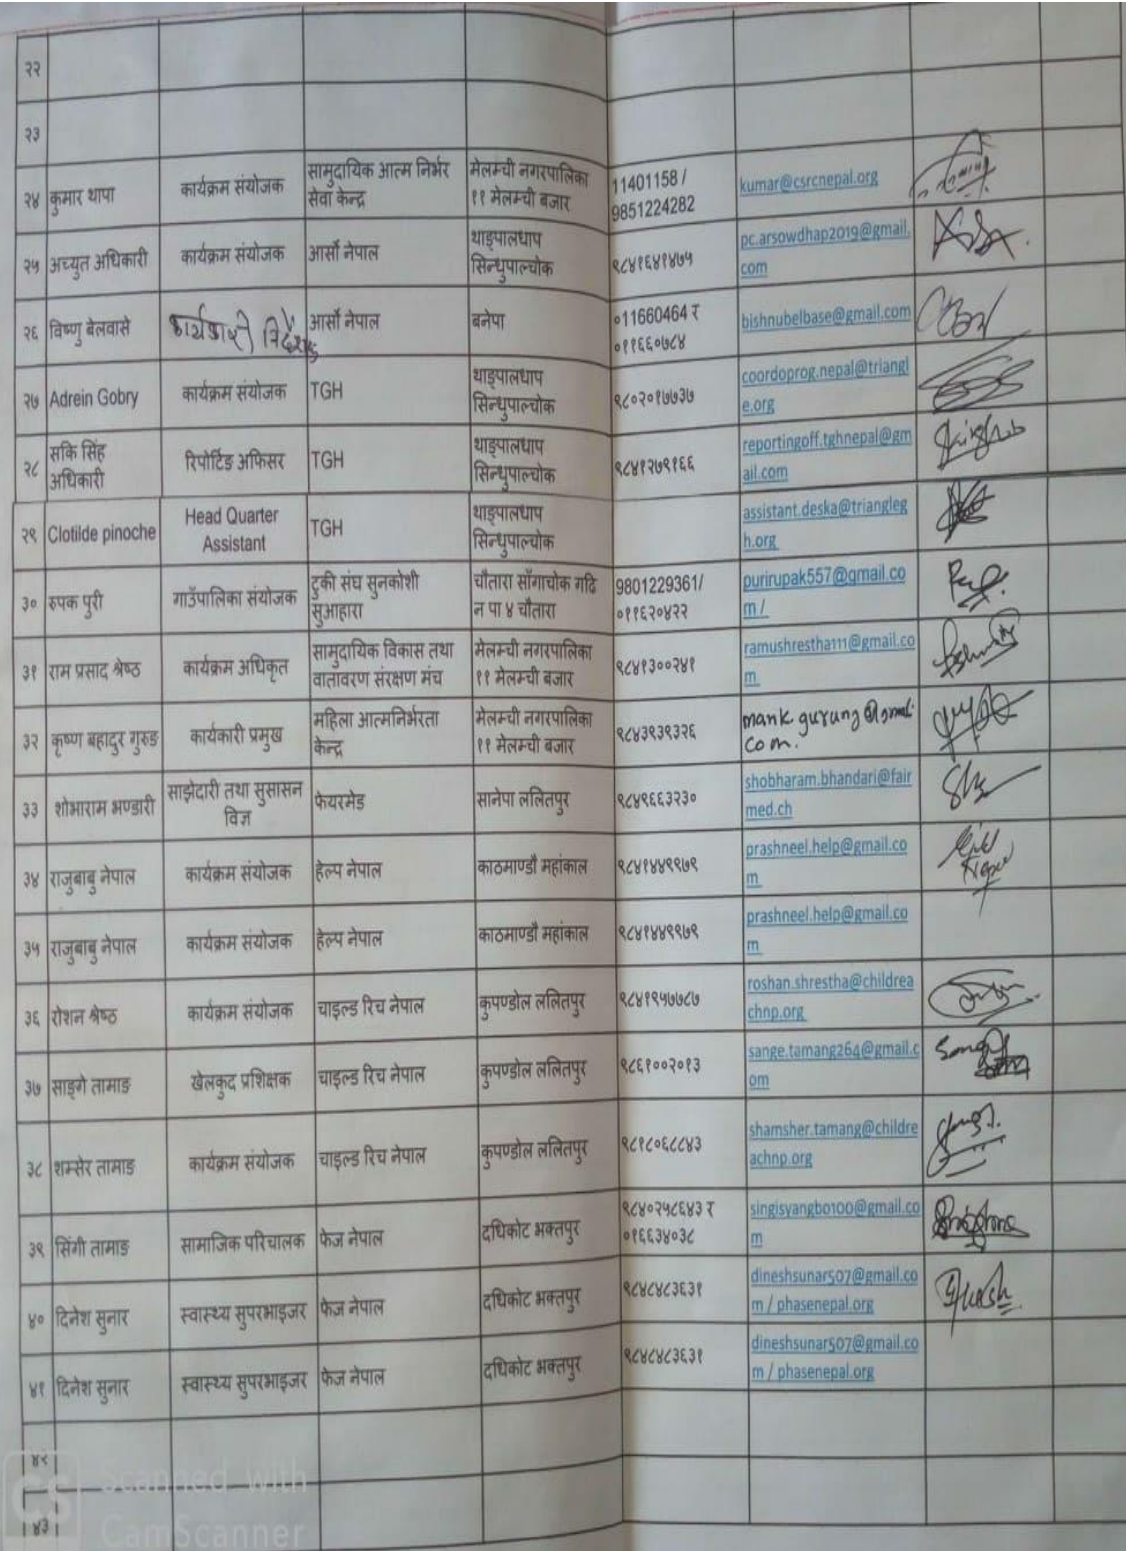 २२
२३
२४ कुमार थापा कार्यक्रम संयोजक सामुदायिक आत्म निर्भर सेवा केन्द्र मेलम्ची नगरपालिका ११ मेलम्ची बजार 11401158 / 9851224282 kumar@csrcnepal.org
२५ अच्युत अधिकारी कार्यक्रम संयोजक आर्सो नेपाल थाङ्पालधाप सिन्धुपाल्चोक ९८४१६४१४७५ pc.arsowdhap2019@gmail.com
२६ विष्णु बेलवासे कार्यकारी निर्देशक आर्सो नेपाल बनेपा ०11660464 र ०११६६०७८४ bishnubelbase@gmail.com
२७ Adrein Gobry कार्यक्रम संयोजक TGH थाङ्पालधाप सिन्धुपाल्चोक ९८०२०१७७३७ coordoprog.nepal@triangle.org
२८ सकि सिंह अधिकारी रिपोर्टिङ अफिसर TGH थाङ्पालधाप सिन्धुपाल्चोक ९८४१२७९१६६ reportingoff.tghnepal@gmail.com
२९ Clotilde pinoche Head Quarter Assistant TGH थाङ्पालधाप सिन्धुपाल्चोक assistant.deska@trianglegh.org
३० रुपक पुरी गाउँपालिका संयोजक टुकी संघ सुनकोशी सुआहारा चौतारा साँगाचोक गढि न पा ४ चौतारा 9801229361/ ०११६२०४२२ purirupak557@gmail.com /
३१ राम प्रसाद श्रेष्ठ कार्यक्रम अधिकृत सामुदायिक विकास तथा वातावरण संरक्षण मंच मेलम्ची नगरपालिका ११ मेलम्ची बजार ९८४१३००२४१ ramushrestha111@gmail.com
३२ कृष्ण बहादुर गुरुङ कार्यकारी प्रमुख महिला आत्मनिर्भरता केन्द्र मेलम्ची नगरपालिका ११ मेलम्ची बजार ९८४३९३९३२६ mank.gurung@gmail.com.
३३ शोभाराम भण्डारी साझेदारी तथा सुसासन विज्ञ फेयरमेड सानेपा ललितपुर ९८४९६६३२३० shobharam.bhandari@fairmed.ch
३४ राजुबाबु नेपाल कार्यक्रम संयोजक हेल्प नेपाल काठमाण्डौ महांकाल ९८४१४४९९७९ prashneel.help@gmail.com
३५ राजुबाबु नेपाल कार्यक्रम संयोजक हेल्प नेपाल काठमाण्डौ महांकाल ९८४१४४९९७९ prashneel.help@gmail.com
३६ रोशन श्रेष्ठ कार्यक्रम संयोजक चाइल्ड रिच नेपाल कुपण्डोल ललितपुर ९८४१९५७७८७ roshan.shrestha@childreachnp.org
३७ साङ्गे तामाङ खेलकुद प्रशिक्षक चाइल्ड रिच नेपाल कुपण्डोल ललितपुर ९८६१००२०१३ sange.tamang264@gmail.com
३८ शम्सेर तामाङ कार्यक्रम संयोजक चाइल्ड रिच नेपाल कुपण्डोल ललितपुर ९८१८०६८८४३ shamsher.tamang@childreachnp.org
३९ सिंगी तामाङ सामाजिक परिचालक फेज नेपाल दधिकोट भक्तपुर ९८४०२५८६४३ र ०१६६३४०३८ singisyangbo100@gmail.com
४० दिनेश सुनार स्वास्थ्य सुपरभाइजर फेज नेपाल दधिकोट भक्तपुर ९८४८४८३६३१ dineshsunar507@gmail.com / phasenepal.org
४१ दिनेश सुनार स्वास्थ्य सुपरभाइजर फेज नेपाल दधिकोट भक्तपुर ९८४८४८३६३१ dineshsunar507@gmail.com / phasenepal.org
४२
४३
CS Scanned with
CamScanner